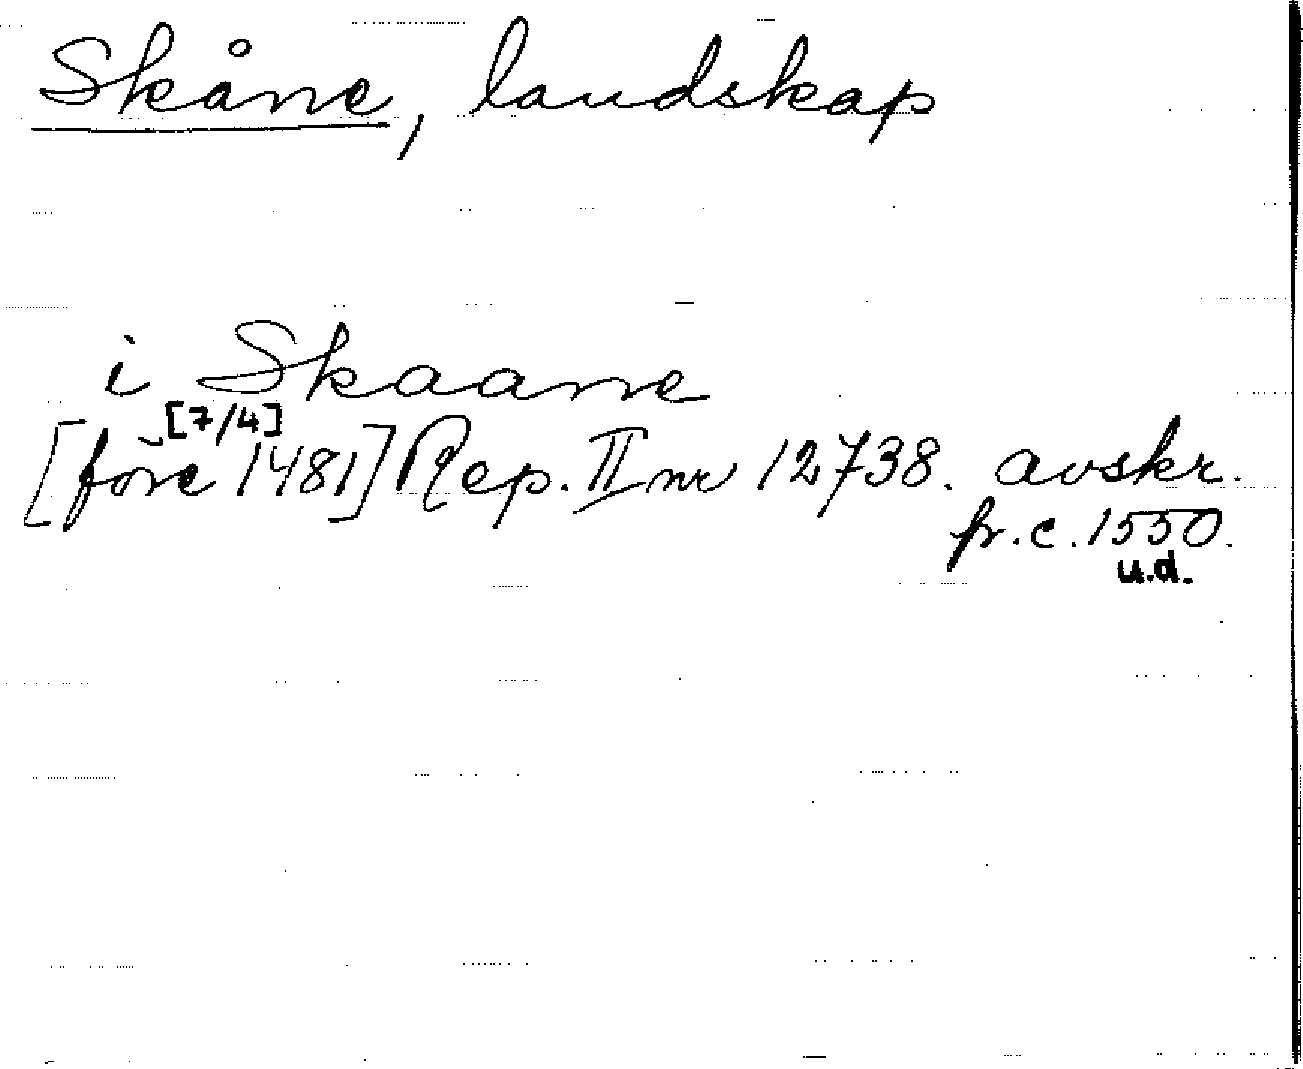 Skåne, landskap
i Skaane
[7/4]
[före 1481] Rep. II nr 12738. avskr.
fr. c. 1550.
u.d.